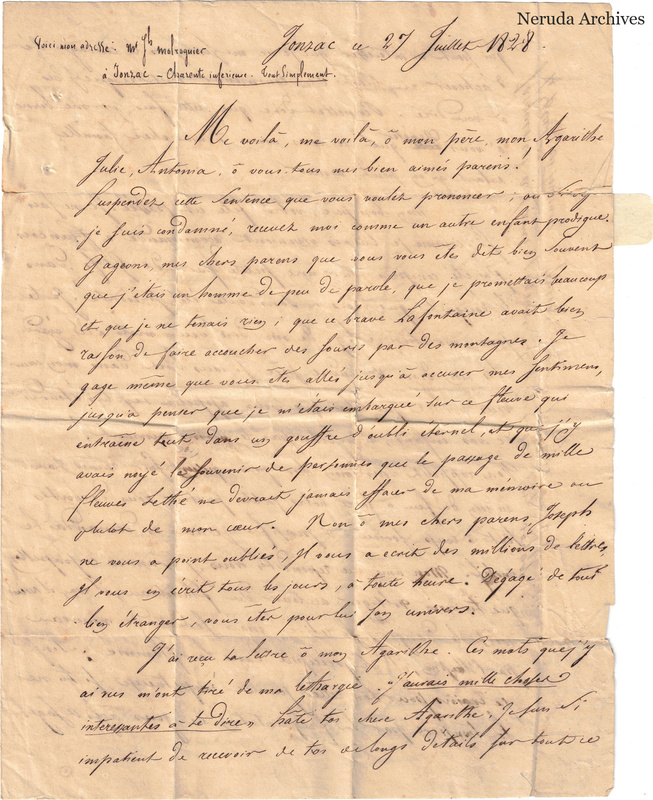 Neruda Archives
Voici mon adresse: Mr Jh Molroguier
à Jonzac - Charente inferieure. tout simplement.
Jonzac ce 27 Juillet 1828.
Me voilà, me voilà, ô mon père, mon Agarithe
Julie, Antonia, ô vous tous mes bien aimés parens!
Suspendez cette Sentence que vous voulez prononcer; ou si
je suis condamné, recevez moi comme un autre enfant prodigue.
Gageons, mes chers parens que vous vous êtes dit bien souvent
que j'étais un homme de peu de parole, que je promettais beaucoup
et que je ne tenais rien; que ce brave Lafontaine avait bien
raison de faire accoucher des souris par des montagnes. Je
gage même que vous êtes allés jusqu'à accuser mes sentimens,
jusqu'à penser que je m'étais embarqué sur ce fleuve qui
entraîne tout dans un gouffre d'oubli éternel, et que j'y
avais noyé le souvenir de personnes que le passage de mille
fleuves Lethé ne devrait jamais effacer de ma mémoire ou
plutot de mon cœur. Non ô mes chers parens, Joseph
ne vous a point oubliés, Il vous a ecrit des millions de lettres,
Il vous en écrit tous les jours, à toute heure. Dégagé de tout
lien étranger, vous êtes pour lui son univers.
J'ai reçu ta lettre ô mon Agarithe. Ces mots que j'y
ai vus m'ont tiré de ma lethargie "J'aurais mille choses
interessantes à te dire" hâte toi chere Agarithe. Je suis si
impatient de recevoir de toi de longs details sur tout ce